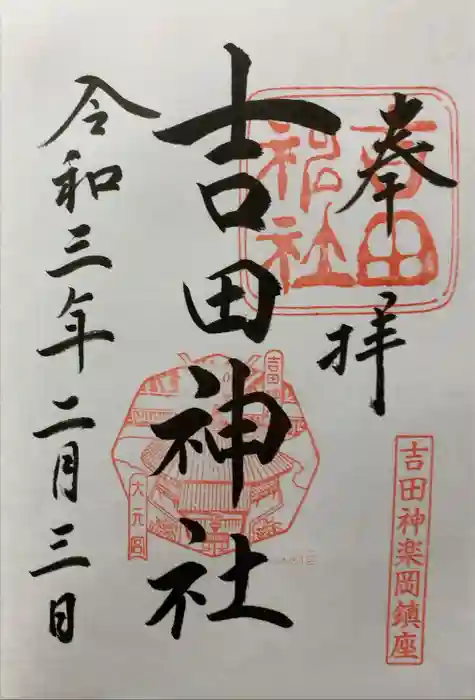 奉拝
吉田神社
吉田神社
吉田
大元宮
吉田神楽岡鎮座
令和三年二月三日